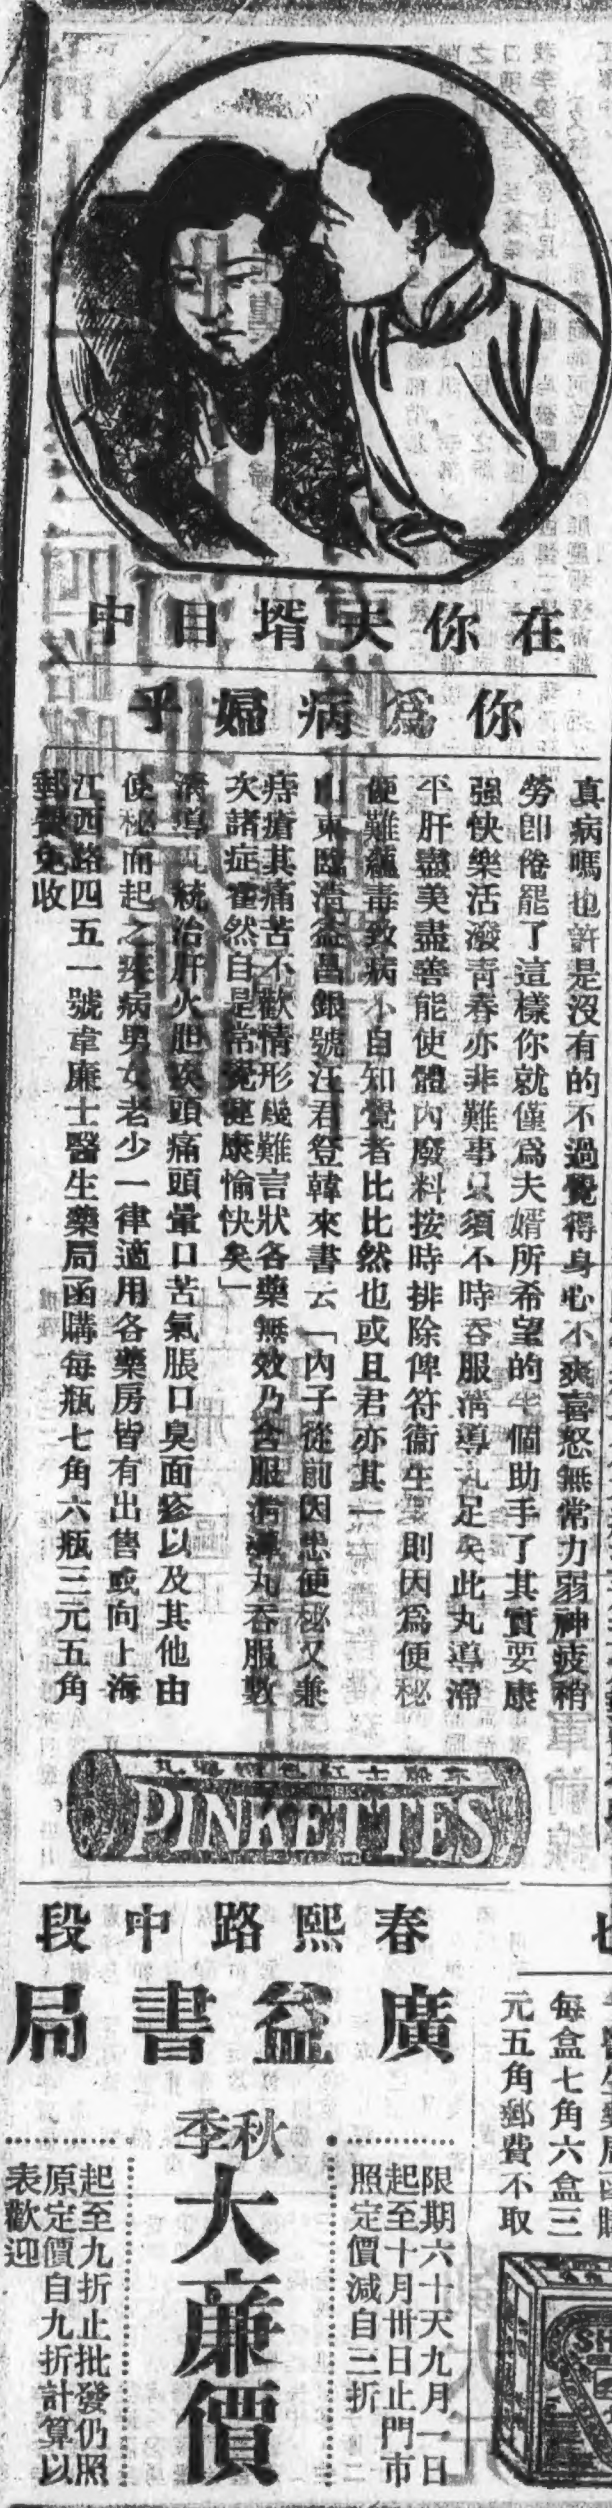 在你夫壻目中
你爲病婦乎
真病嗎也許是沒有的不過覺得身心不爽喜怒無常力弱神疲稍
勞卽倦罷了這樣你就僅爲夫婿所希望的半個助手了其實要康
強快樂活潑青春亦非難事只須不時吞服清導丸足矣此丸導滯
平肝盡美盡善能使體內廢料按時排除俾符衛生 則因爲便秘
便難蘊毒致病不自知覺者比比然也或且君亦其一
山東臨清益昌銀號汪君登韓來書云「內子從前因患便秘又兼
痔瘡其痛苦不歡情形幾難言狀各藥無效乃含服清導丸吞服數
次諸症霍然自是常覺健康愉快矣」
清導丸統治肝火胆疾頭痛頭暈口苦氣脹口臭面疹以及其他由
便秘而起之疾病男女老少一律適用各藥房皆有出售或向上海
江西路四五一號韋廉士醫生藥局函購每瓶七角六瓶三元五角
郵費免收
PINKETTES
春熙路中段
廣益書局
秋季
大廉價
限期六十天九月一日
起至十月卅日止門市
照定價減自三折
起至九折止批發仍照
原定價自九折計算以
表歡迎
每盒七角六盒三
元五角郵費不取